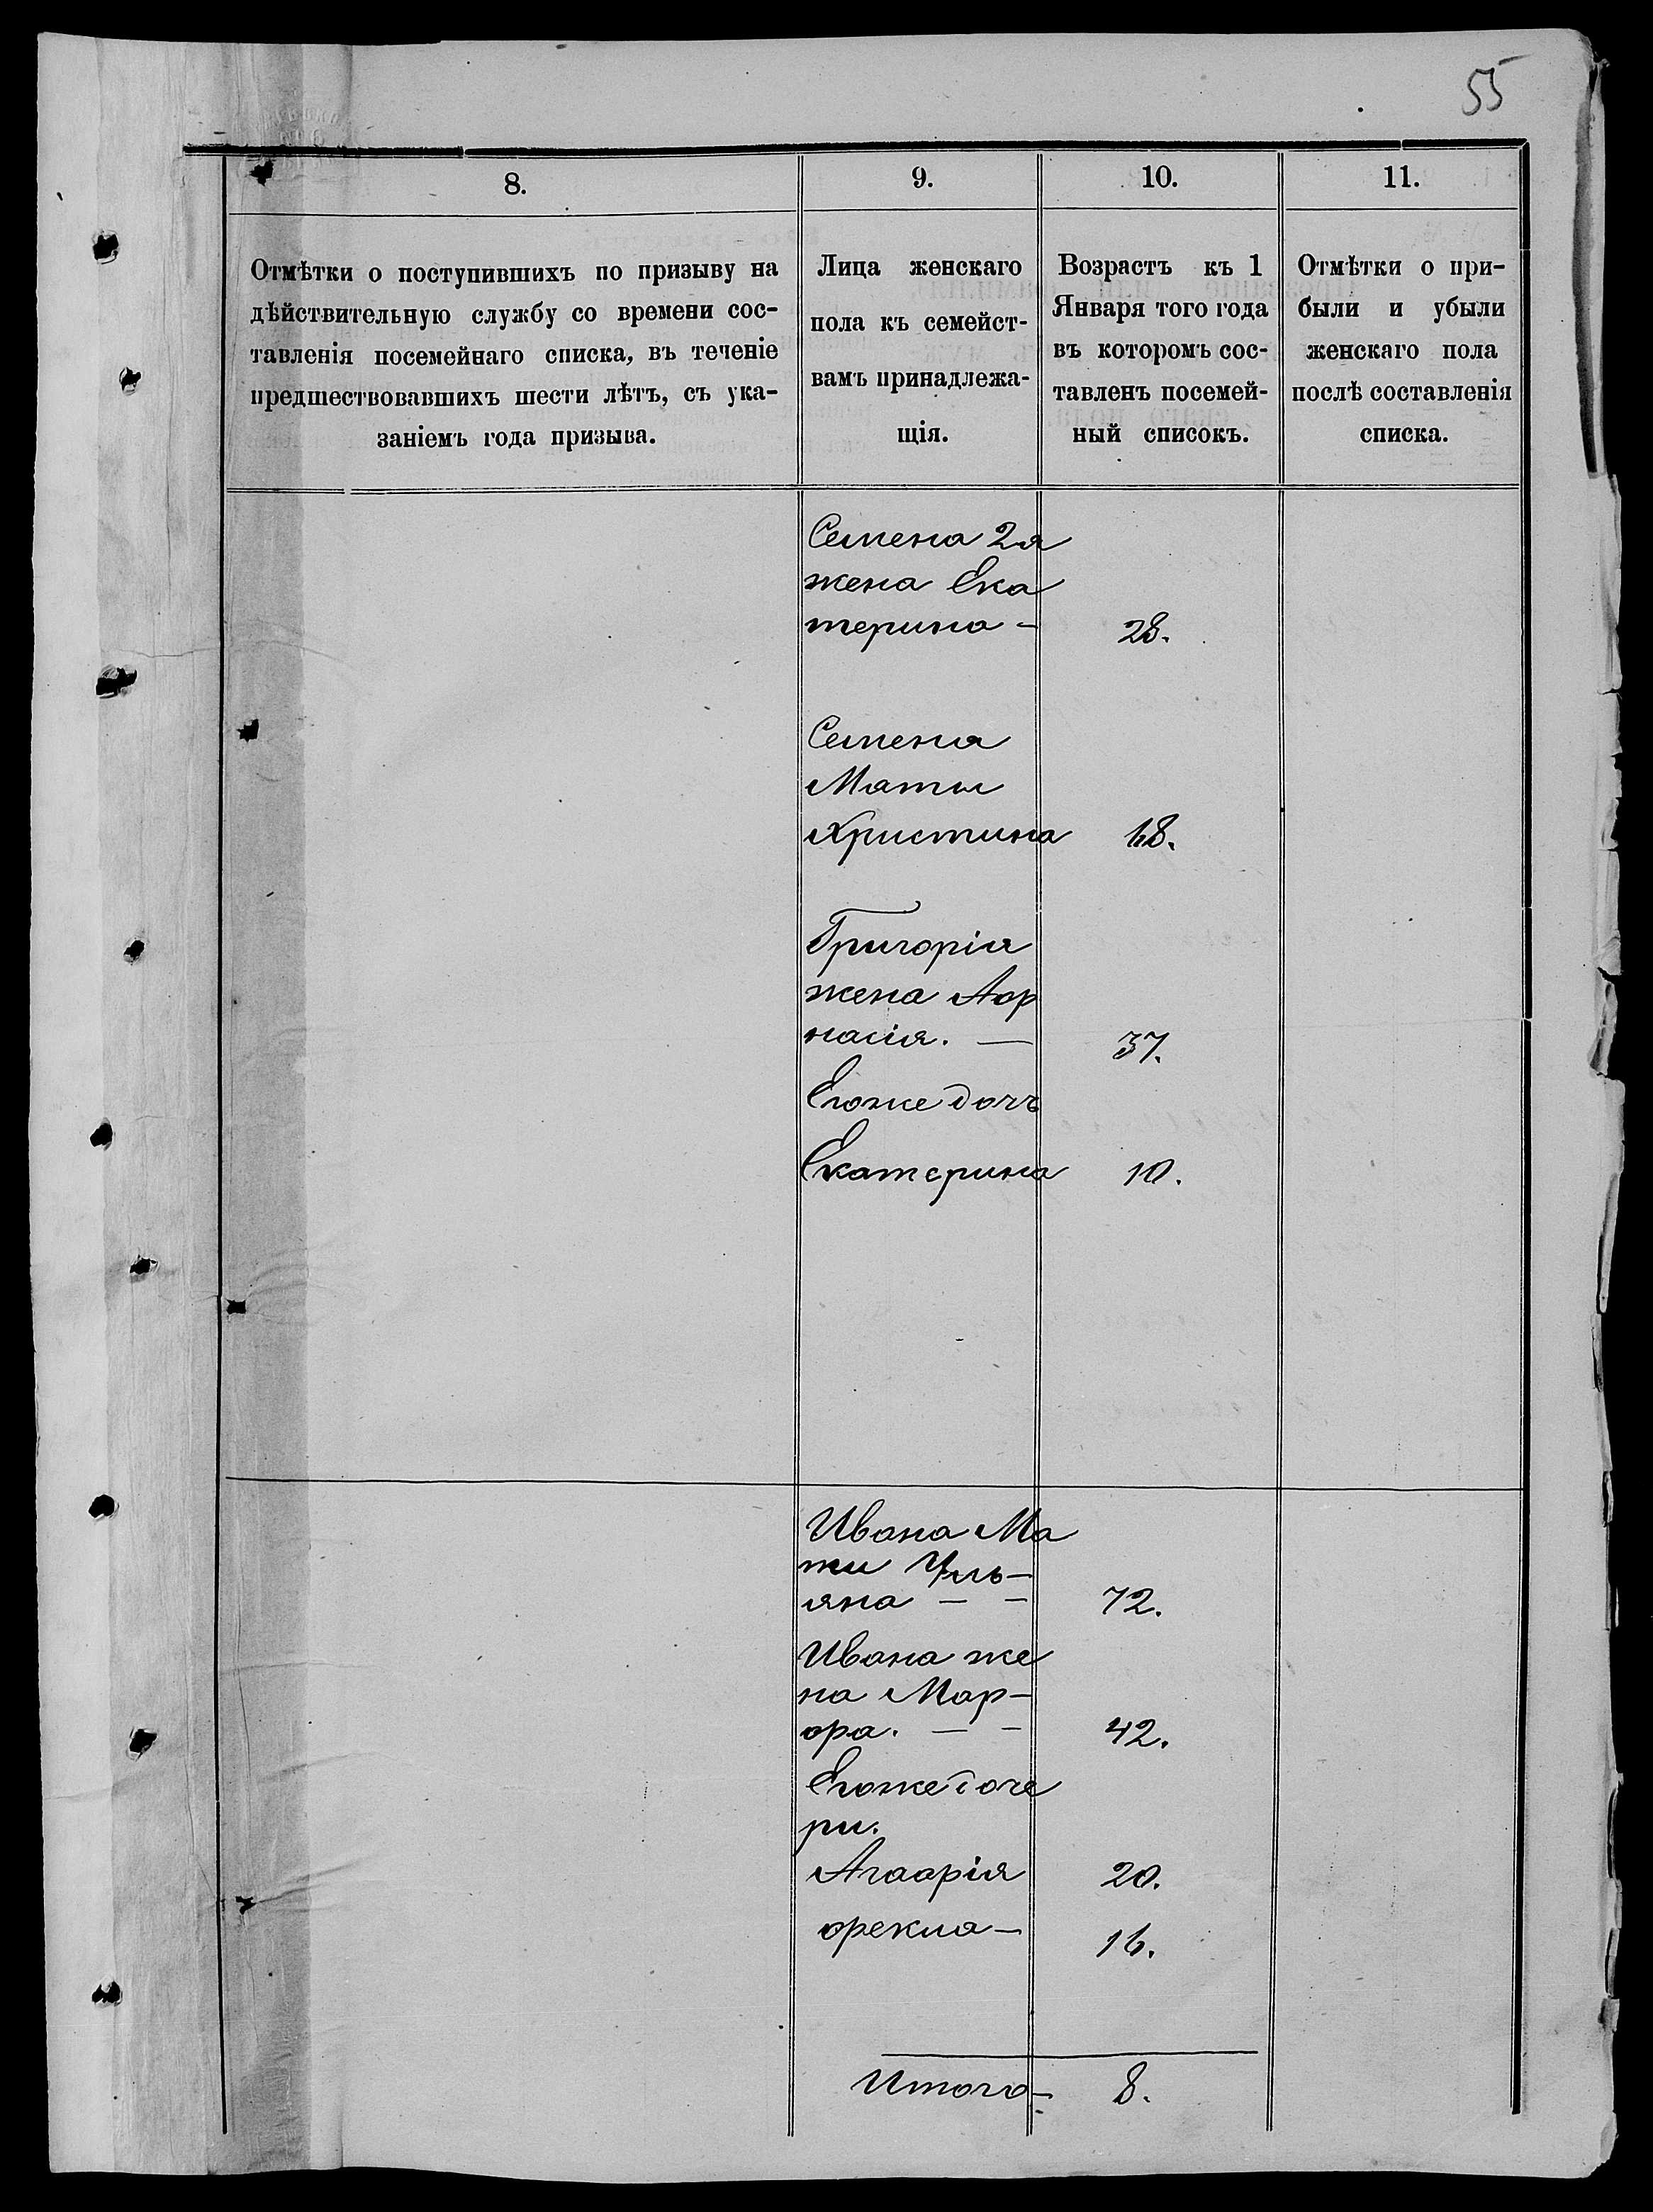 55
8.
9.
10.
11.
Отмѣтки о поступившихъ по призыву на
дѣйствительную службу со времени сос-
тавленія посемейнаго списка, въ теченіе
предшествовавшихъ шести лѣтъ, съ ука-
заніемъ года призыва.
Лица женскаго
пола къ семейст-
вамъ принадлежа-
щія.
Возрастъ къ 1
Января того года
въ которомъ сос-
тавленъ посемей-
ный списокъ.
Отмѣтки о при-
были и убыли
женскаго пола
послѣ составленія
списка.
Семена 2я
жена Ека
терина - 28.
Семена
Мати
Христина 68.
Григорія
жена Аф
насія. — 37.
Егоже дочь
Екатерина 10.
Ивана Ма
ти Уль-
яна - - 72.
Ивана же
на Мар-
фа. - - 42.
Егоже доче
ри.
Агафія 20.
Фекла - 16.
Итого - 8.